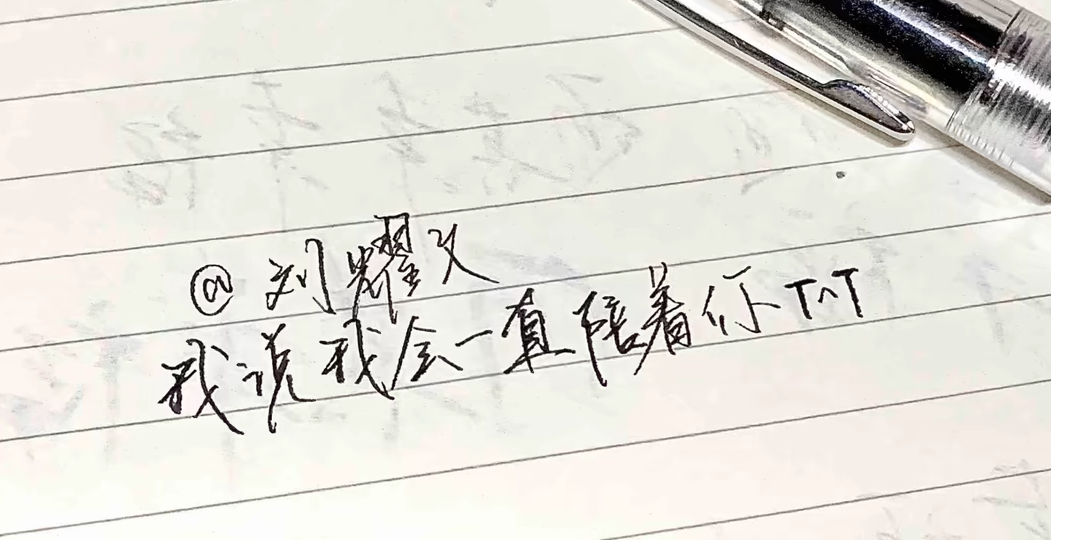 @刘耀文
我说我会一直陪着你T^T